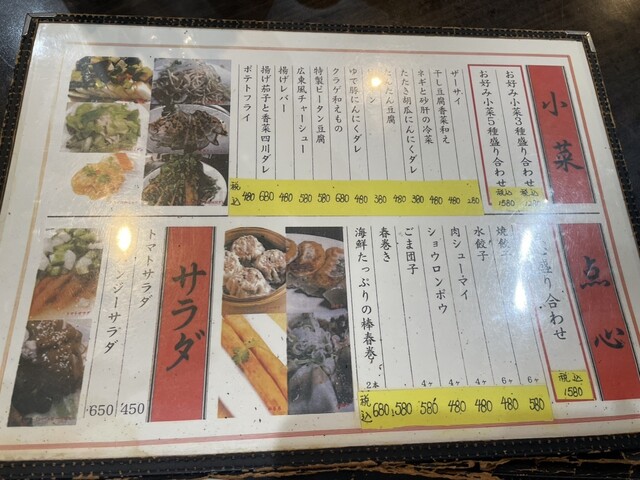 小菜
お好み小菜3種盛り合わせ
お好み小菜5種盛り合わせ 税込 1580
ザーサイ 280
干し豆腐香菜和え 480
ネギと砂肝の冷菜 480
たたき胡瓜にんにくダレ 480
たんたん豆腐 380
ゆで豚にんにくダレ 480
クラゲ和えもの 680
特製ピータン豆腐 580
広東風チャーシュー 580
揚げレバー 480
揚げ茄子と香菜四川ダレ 680
ポテトフライ 480
税込
点心
盛り合わせ 税込 1580
焼餃子 6ヶ 580
水餃子 6ヶ 480
肉シューマイ 4ヶ 480
ショウロンポウ 4ヶ 480
ごま団子 4ヶ 580
春巻き 580
海鮮たっぷりの棒春巻 2本 680
税込
サラダ
トマトサラダ 450
ンジーサラダ 650